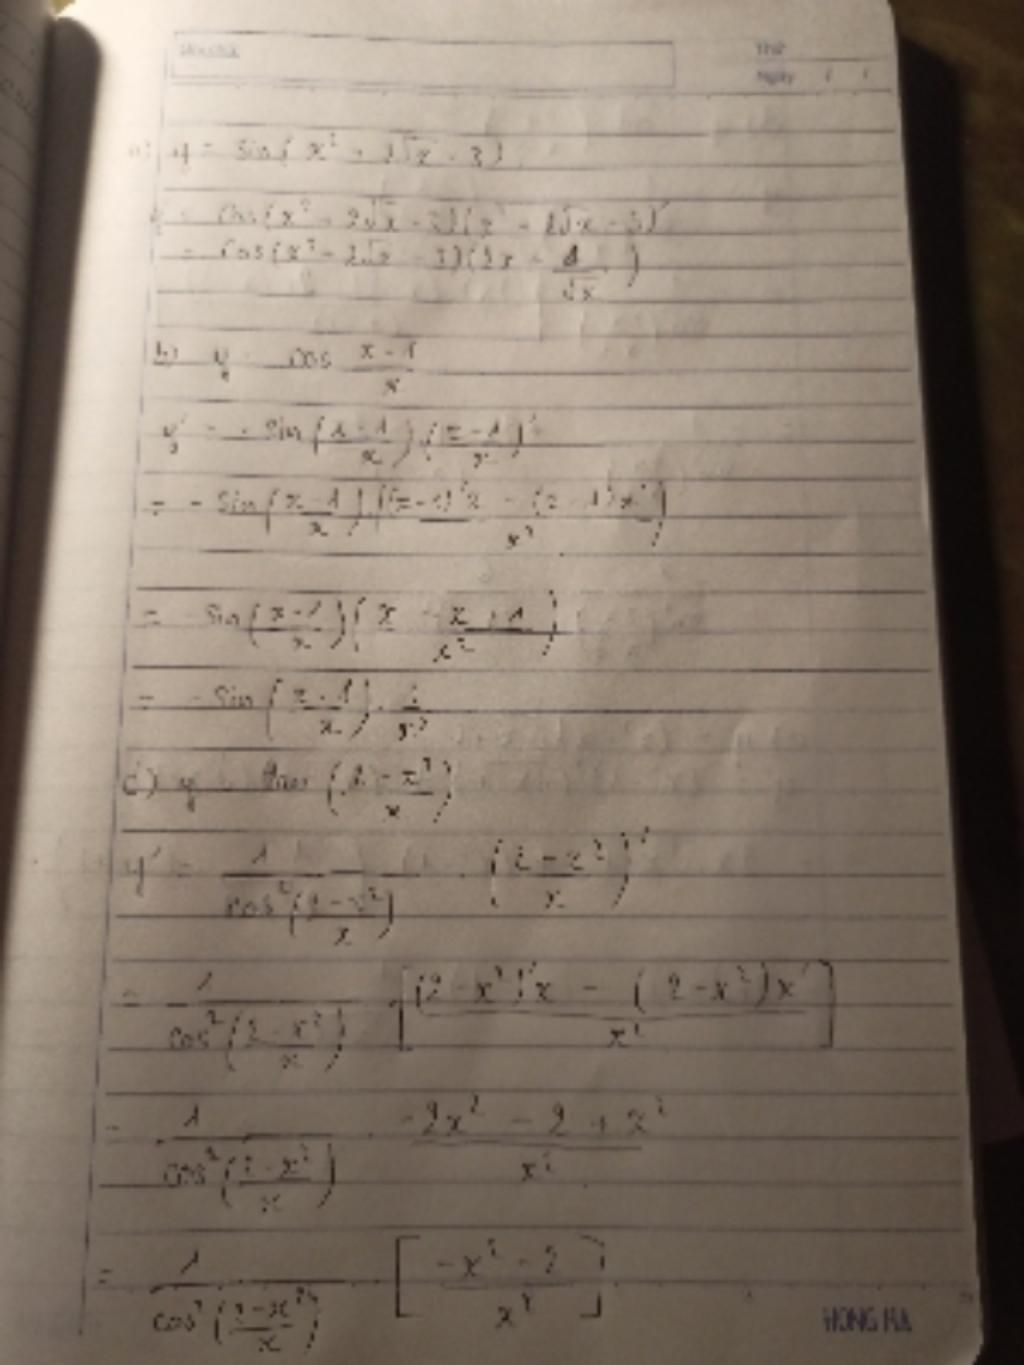 Thứ
Ngày / /
a) y = sin(x² + 2√x - 3)
y' = cos(x² + 2√x - 3)(x² + 2√x - 3)'
= cos(x² + 2√x - 3)(2x + 1/√x)
b) y = cos (x-1)/x
y' = - sin((x-1)/x).((x-1)/x)'
= - sin((x-1)/x).(((x-1)'x - (x-1)x')/x²)
= - sin((x-1)/x)((x - x + 1)/x²)
= - sin((x-1)/x) . 1/x²
c) y = tan((2-x²)/x)
y' = 1/cos²((2-x²)/x) . ((2-x²)/x)'
= 1/cos²((2-x²)/x) . [((2-x²)'x - (2-x²)x')/x²]
= 1/cos²((2-x²)/x) . (-2x² - 2 + x²)/x²
= 1/cos²((2-x²)/x) [(-x² - 2)/x²]
HONG HA